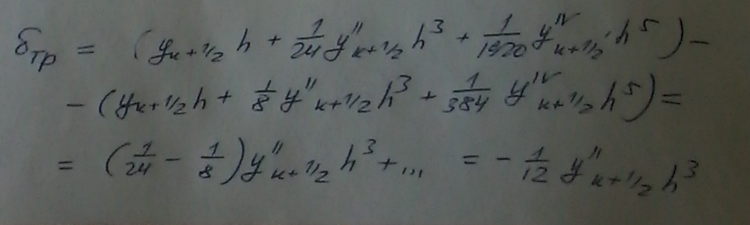 δ_тр = (y_{k+1/2} h + 1/24 y''_{k+1/2} h^3 + 1/1920 y^{IV}_{k+1/2} · h^5) −
− (y_{k+1/2} h + 1/8 y''_{k+1/2} h^3 + 1/384 y^{IV}_{k+1/2} h^5) =
= (1/24 − 1/8) y''_{k+1/2} h^3 + ... = − 1/12 y''_{k+1/2} h^3